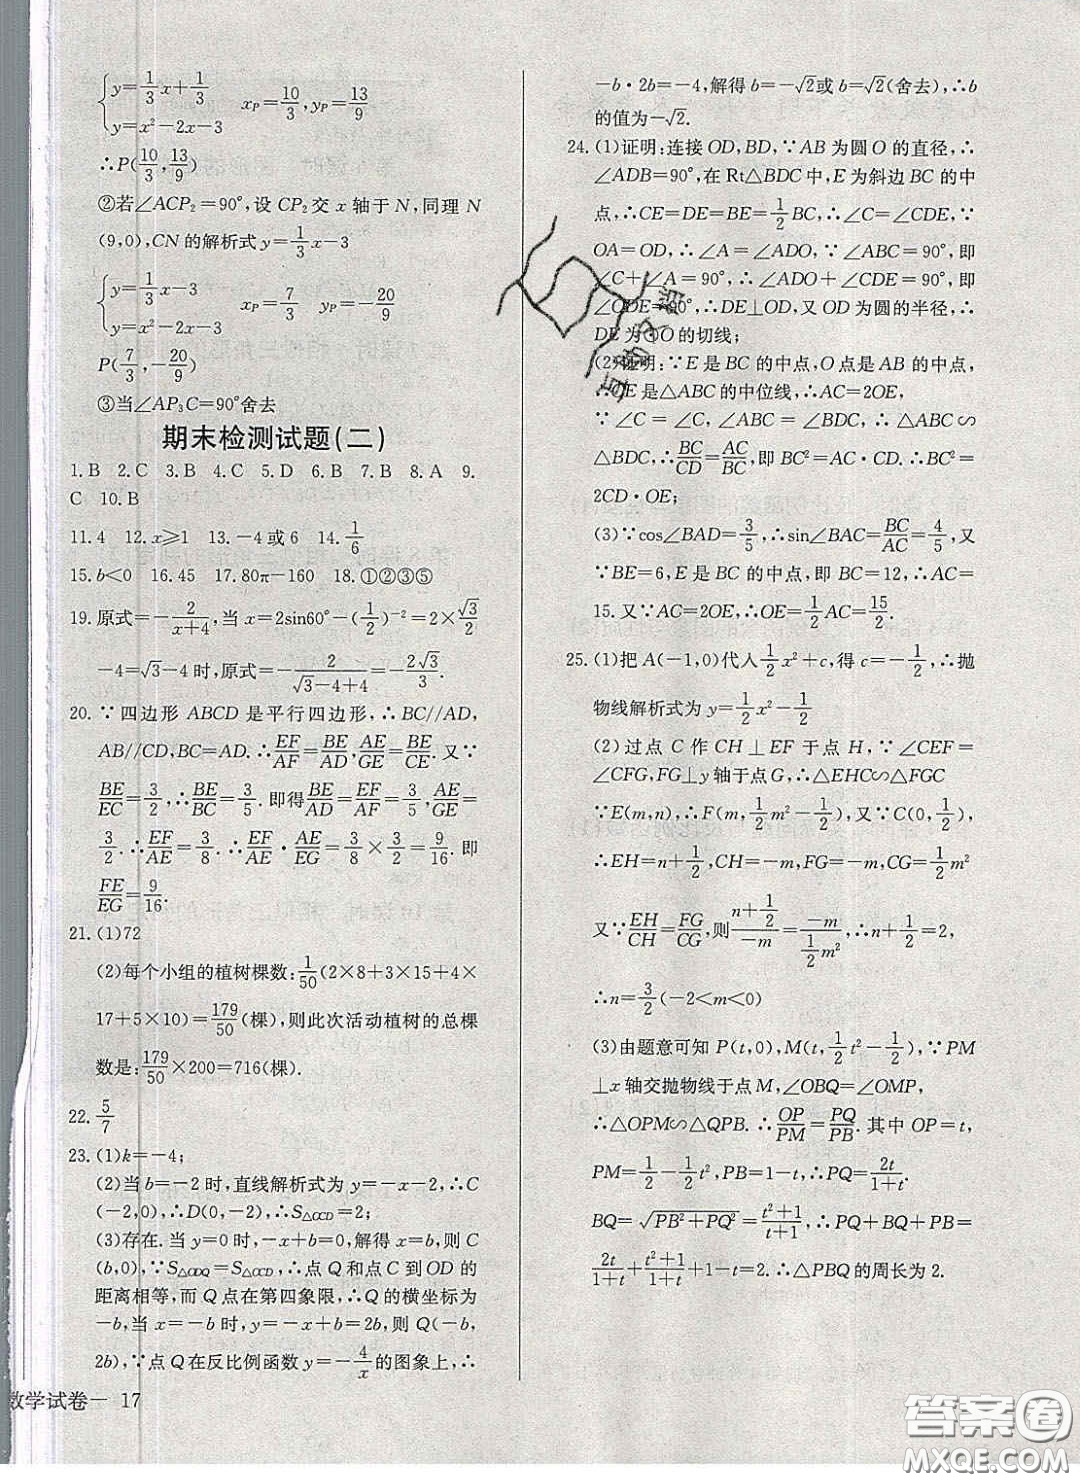 {y=1/3x+1/3
y=x²-2x-3 x_P=10/3,y_P=13/9
∴P(10/3,13/9)
②若∠ACP₂=90°,设CP₂交x轴于N,同理N
(9,0),CN的解析式y=1/3x-3
{y=1/3x-3
y=x²-2x-3 x_P=7/3 y_P=-20/9
P(7/3,-20/9)
③当∠AP₃C=90°舍去
期末检测试题(二)
1.B 2.C 3.B 4.C 5.D 6.B 7.B 8.A 9.
C 10.B
11.4 12.x≥1 13.-4或6 14.1/6
15.b<0 16.45 17.80π-160 18.①②③⑤
19.原式=-2/(x+4),当x=2sin60°-(1/2)⁻²=2×√3/2
-4=√3-4时,原式=-2/(√3-4+4)=-2√3/3.
20.∵四边形ABCD是平行四边形,∴BC//AD,
AB//CD,BC=AD.∴EF/AF=BE/AD,AE/GE=BE/CE.又∵
BE/EC=3/2,∴BE/BC=3/5.即得BE/AD=EF/AF=3/5,AE/GE=
3/2.∴EF/AE=3/8.∴EF/AE·AE/EG=3/8×3/2=9/16.即
FE/EG=9/16.
21.(1)72
(2)每个小组的植树棵数:1/50(2×8+3×15+4×
17+5×10)=179/50(棵),则此次活动植树的总棵
数是:179/50×200=716(棵).
22.5/7
23.(1)k=-4;
(2)当b=-2时,直线解析式为y=-x-2,∴C
(-2,0),∴D(0,-2),∴S△OCD=2;
(3)存在.当y=0时,-x+b=0,解得x=b,则C
(b,0),∵S△ODQ=S△OCD,∴点Q和点C到OD的
距离相等,而Q点在第四象限,∴Q的横坐标为
-b,当x=-b时,y=-x+b=2b,则Q(-b,
2b),∵点Q在反比例函数y=-4/x的图象上,∴
数学试卷— 17
-b·2b=-4,解得b=-√2或b=√2(舍去),∴b
的值为-√2.
24.(1)证明:连接OD,BD,∵AB为圆O的直径,∴
∠ADB=90°,在Rt△BDC中,E为斜边BC的中
点,∴CE=DE=BE=1/2BC,∴∠C=∠CDE,∵
OA=OD,∴∠A=∠ADO,∵∠ABC=90°,即
∠C+∠A=90°,∴∠ADO+∠CDE=90°,即
∠ODE=90°,∴DE⊥OD,又OD为圆的半径,∴
DE为⊙O的切线;
(2)证明:∵E是BC的中点,O点是AB的中点,
∴OE是△ABC的中位线,∴AC=2OE,
∵∠C=∠C,∠ABC=∠BDC,∴△ABC∽
△BDC,∴BC/CD=AC/BC,即BC²=AC·CD.∴BC²=
2CD·OE;
(3)∵cos∠BAD=3/5,∴sin∠BAC=BC/AC=4/5,又
∵BE=6,E是BC的中点,即BC=12,∴AC=
15.又∵AC=2OE,∴OE=1/2AC=15/2.
25.(1)把A(-1,0)代人1/2x²+c,得c=-1/2,∴抛
物线解析式为y=1/2x²-1/2
(2)过点C作CH⊥EF于点H,∵∠CEF=
∠CFG,FG⊥y轴于点G,∴△EHC∽△FGC
∵E(m,n),∴F(m,1/2m²-1/2),又∵C(0,1/2),
∴EH=n+1/2,CH=-m,FG=-m,CG=1/2m²
又∵EH/CH=FG/CG,则(n+1/2)/(-m)=(-m)/(1/2m²),∴n+1/2=2,
∴n=3/2(-2<m<0)
(3)由题意可知P(t,0),M(t,1/2t²-1/2),∵PM
⊥x轴交抛物线于点M,∠OBQ=∠OMP,
∴△OPM∽△QPB.∴OP/PM=PQ/PB.其中OP=t,
PM=1/2-1/2t²,PB=1-t,∴PQ=2t/(1+t).
BQ=√(PB²+PQ²)=(t²+1)/(1+t),∴PQ+BQ+PB=
2t/(1+t)+(t²+1)/(1+t)+1-t=2.∴△PBQ的周长为2.
答案圈
MXQE.COM